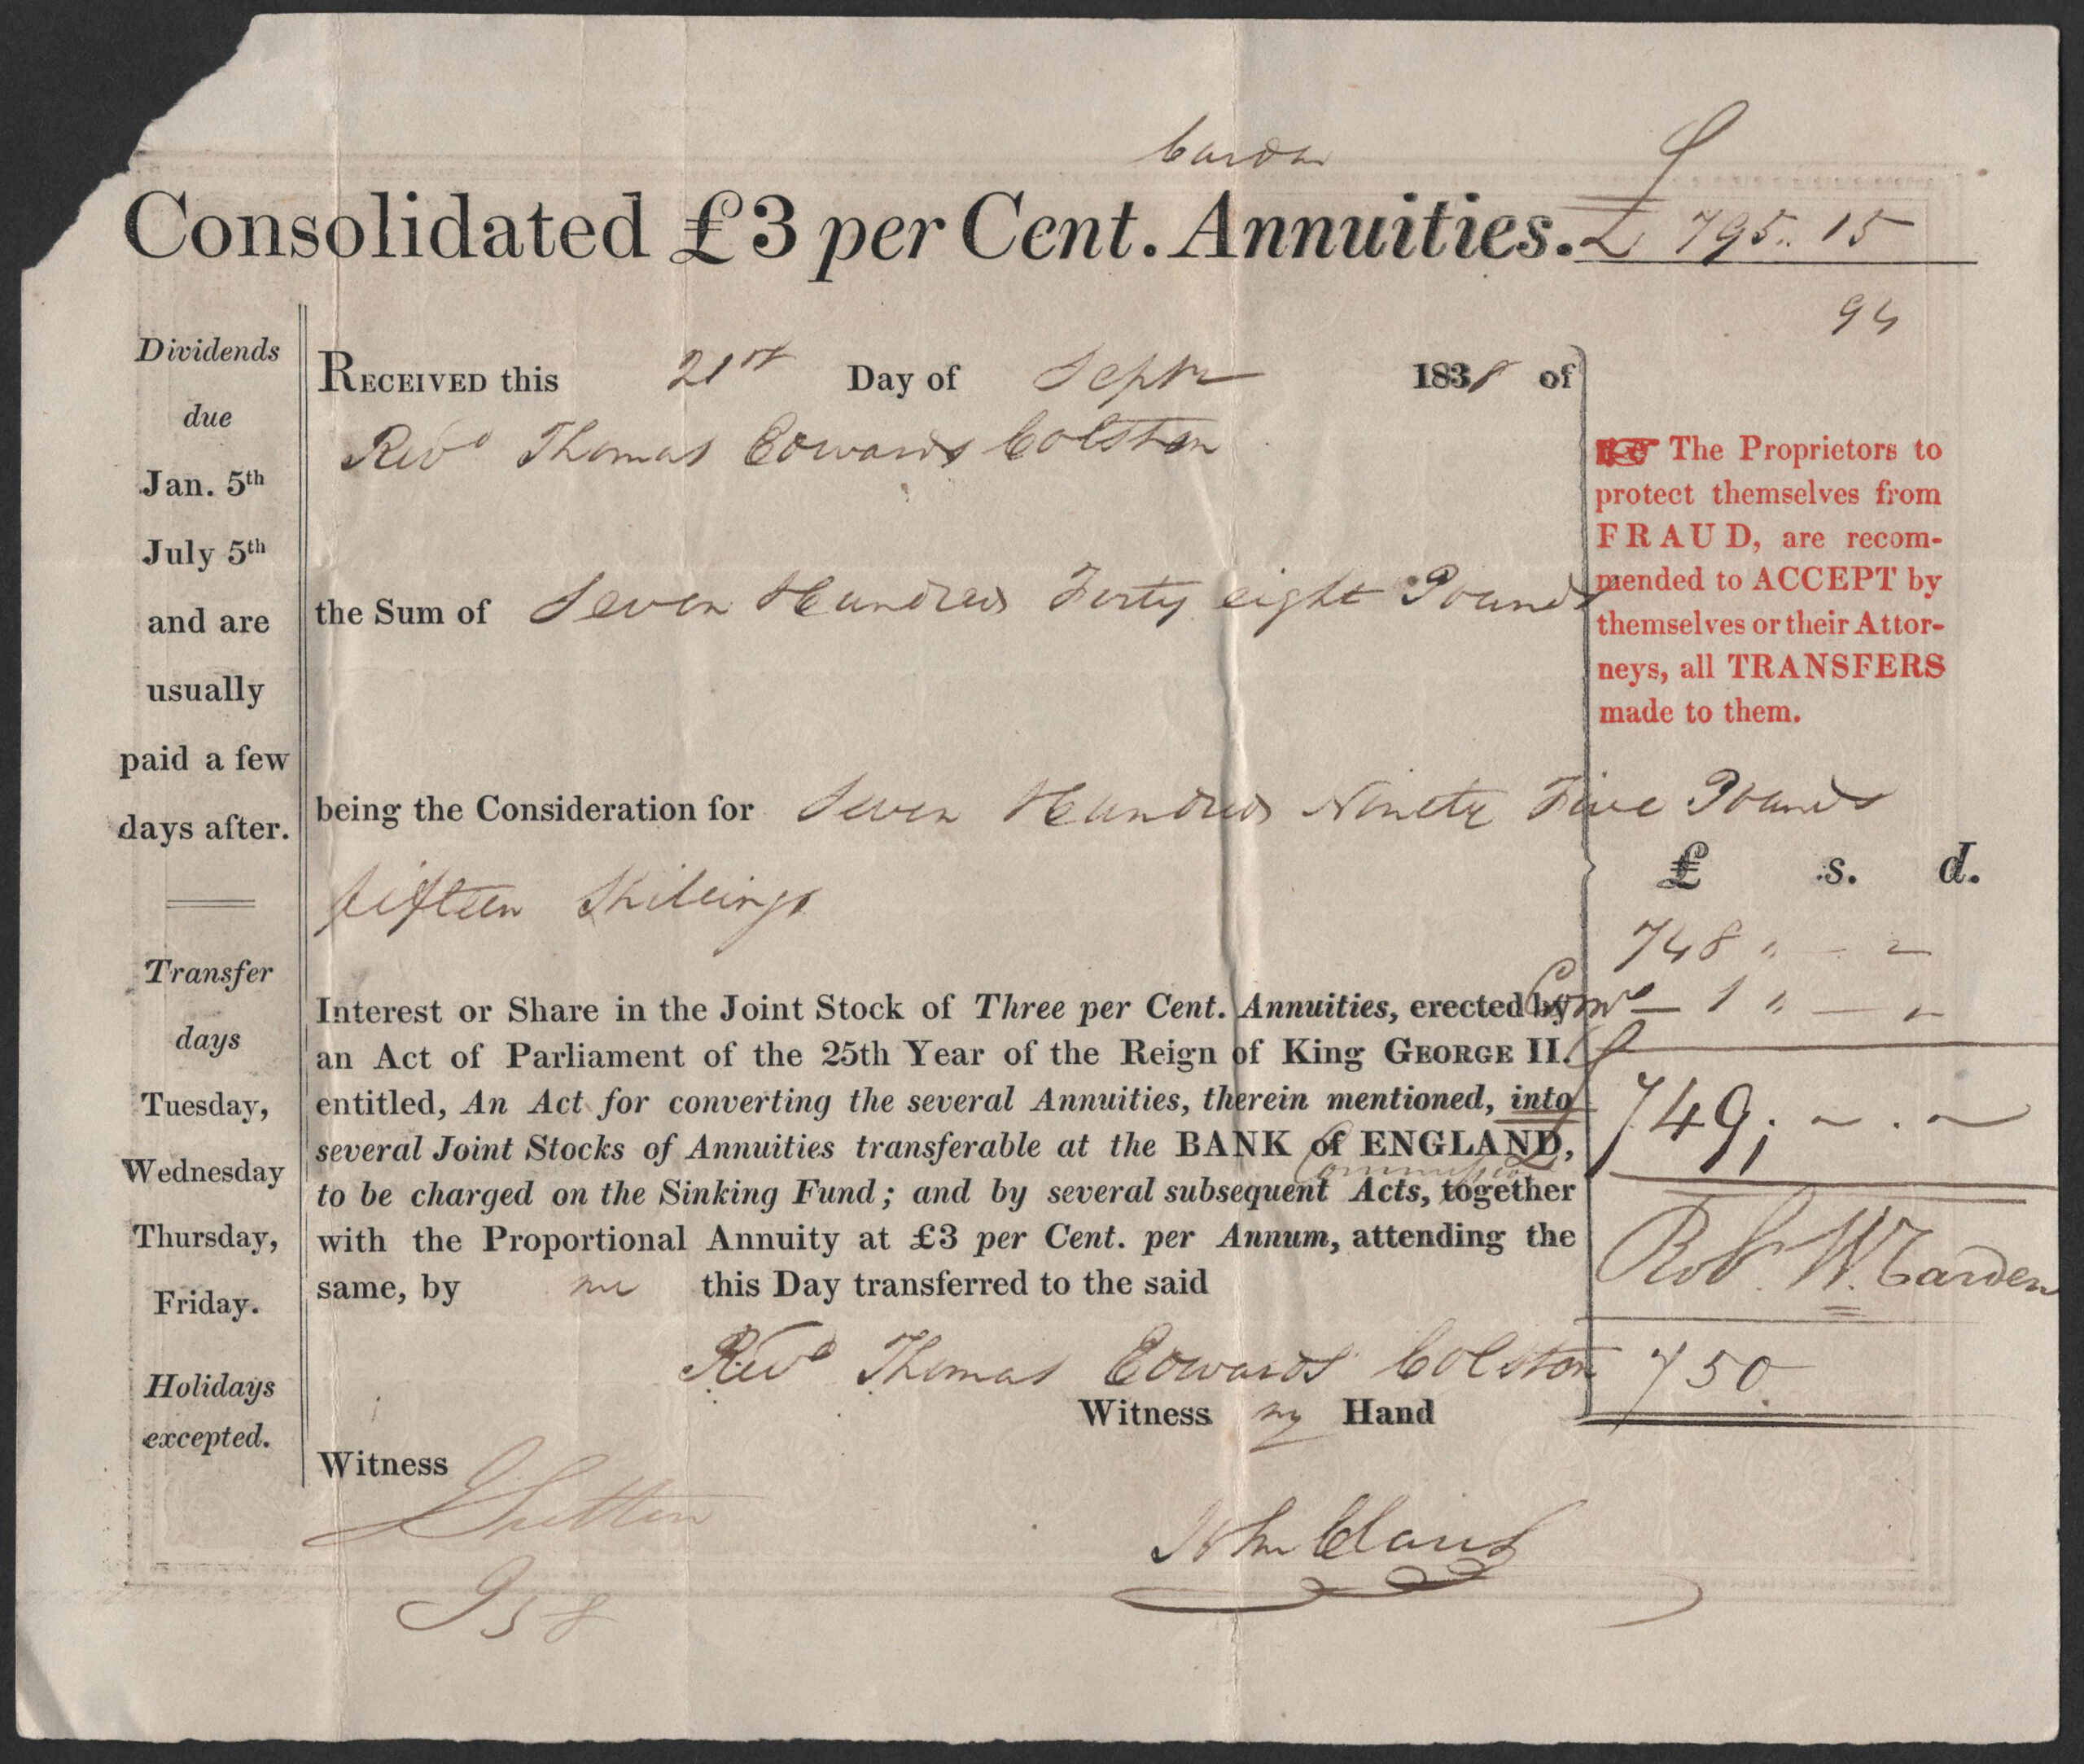 Carden
Consolidated £3 per Cent. Annuities. £ 795 .. 15
94
Dividends
due
Jan. 5th
July 5th
and are
usually
paid a few
days after.
Transfer
days
Tuesday,
Wednesday
Thursday,
Friday.
Holidays
excepted.
RECEIVED this 21st Day of Septr 1838 of
Revd Thomas Edwards Colston
the Sum of Seven Hundred Forty eight Pounds
being the Consideration for Seven Hundred Ninety Five Pounds
fifteen Shillings
Interest or Share in the Joint Stock of Three per Cent. Annuities, erected by
an Act of Parliament of the 25th Year of the Reign of King GEORGE II.
entitled, An Act for converting the several Annuities, therein mentioned, into
several Joint Stocks of Annuities transferable at the BANK of ENGLAND,
Commission
to be charged on the Sinking Fund; and by several subsequent Acts, together
with the Proportional Annuity at £3 per Cent. per Annum, attending the
same, by me this Day transferred to the said
Revd Thomas Edwards Colston
Witness my Hand
Witness
958
The Proprietors to
protect themselves from
FRAUD, are recom-
mended to ACCEPT by
themselves or their Attor-
neys, all TRANSFERS
made to them.
£ s. d.
748 " — "
1 " — "
749 ; ~ . ~
Rob. W. Carden
750